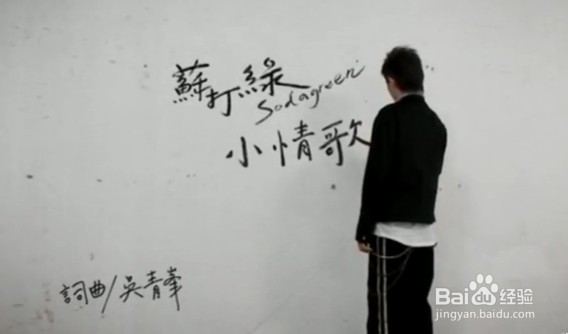 蘇打綠
Sodagreen
小情歌
詞曲/吳青峯
Bai du 经验
jingyan.baidu.com